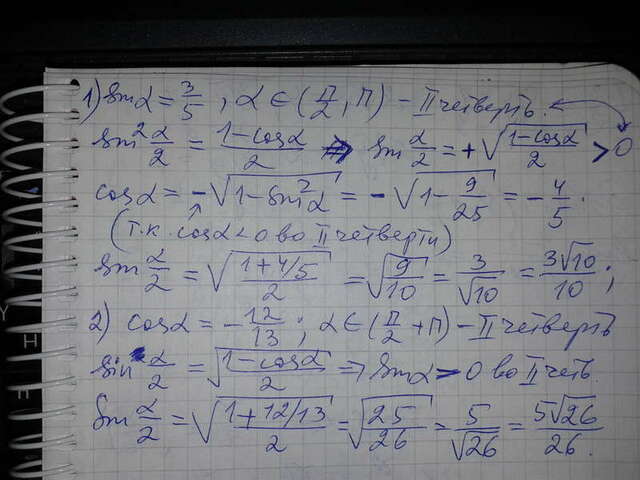 1) sinα = 3/5 ; α ∈ (П/2, П) – II четверть.
sin² α/2 = (1-cosα)/2 ⇒ sin α/2 = +√((1-cosα)/2) > 0
cosα = -√(1-sin²α) = -√(1-9/25) = -4/5.
(т.к. cosα < 0 во II четверти)
sin α/2 = √((1+4/5)/2) = √(9/10) = 3/√10 = 3√10/10 ;
2) cosα = -12/13 ; α ∈ (П/2 + П) – II четверть
sin α/2 = √((1-cosα)/2) ⇒ sinα > 0 во II четв.
sin α/2 = √((1+12/13)/2) = √(25/26) = 5/√26 = 5√26/26.